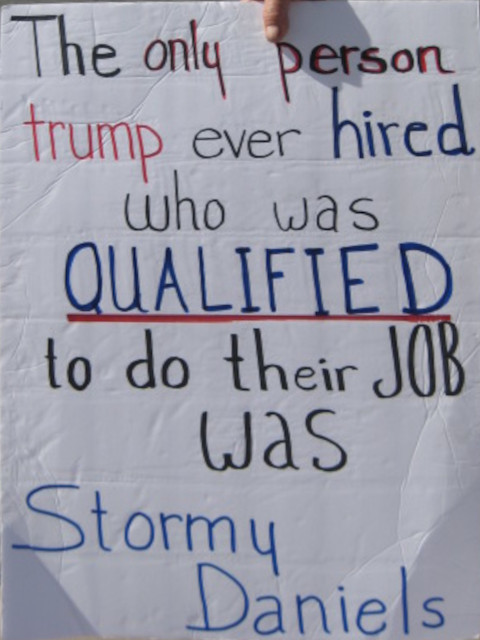 The only person
trump ever hired
who was
QUALIFIED
to do their JOB
was
Stormy
Daniels